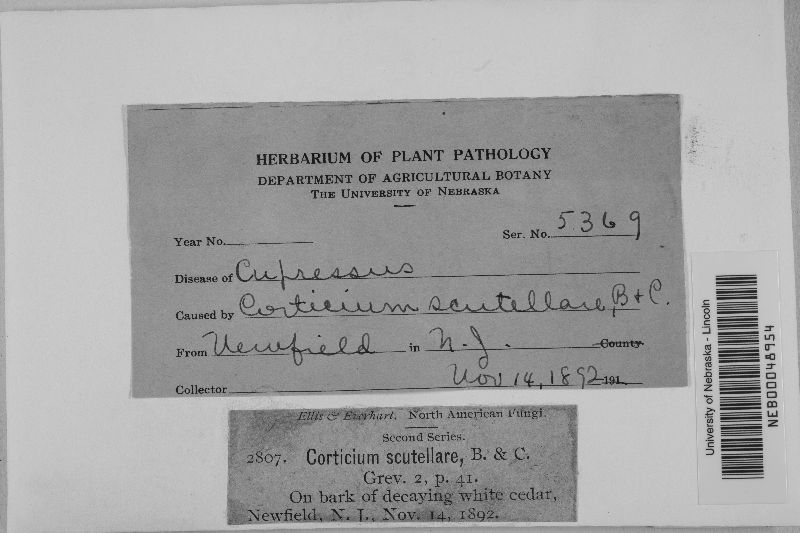 HERBARIUM OF PLANT PATHOLOGY
DEPARTMENT OF AGRICULTURAL BOTANY
THE UNIVERSITY OF NEBRASKA
Year No. Ser. No. 5369
Disease of Cupressus
Caused by Corticium scutellare, B & C.
From Newfield in N. J. County
Nov 14, 1892 191
Collector
Ellis & Everhart, North American Fungi.
Second Series.
2807. Corticium scutellare, B. & C.
Grev. 2, p. 41.
On bark of decaying white cedar,
Newfield, N. J., Nov. 14, 1892.
University of Nebraska - Lincoln
NEB00048954